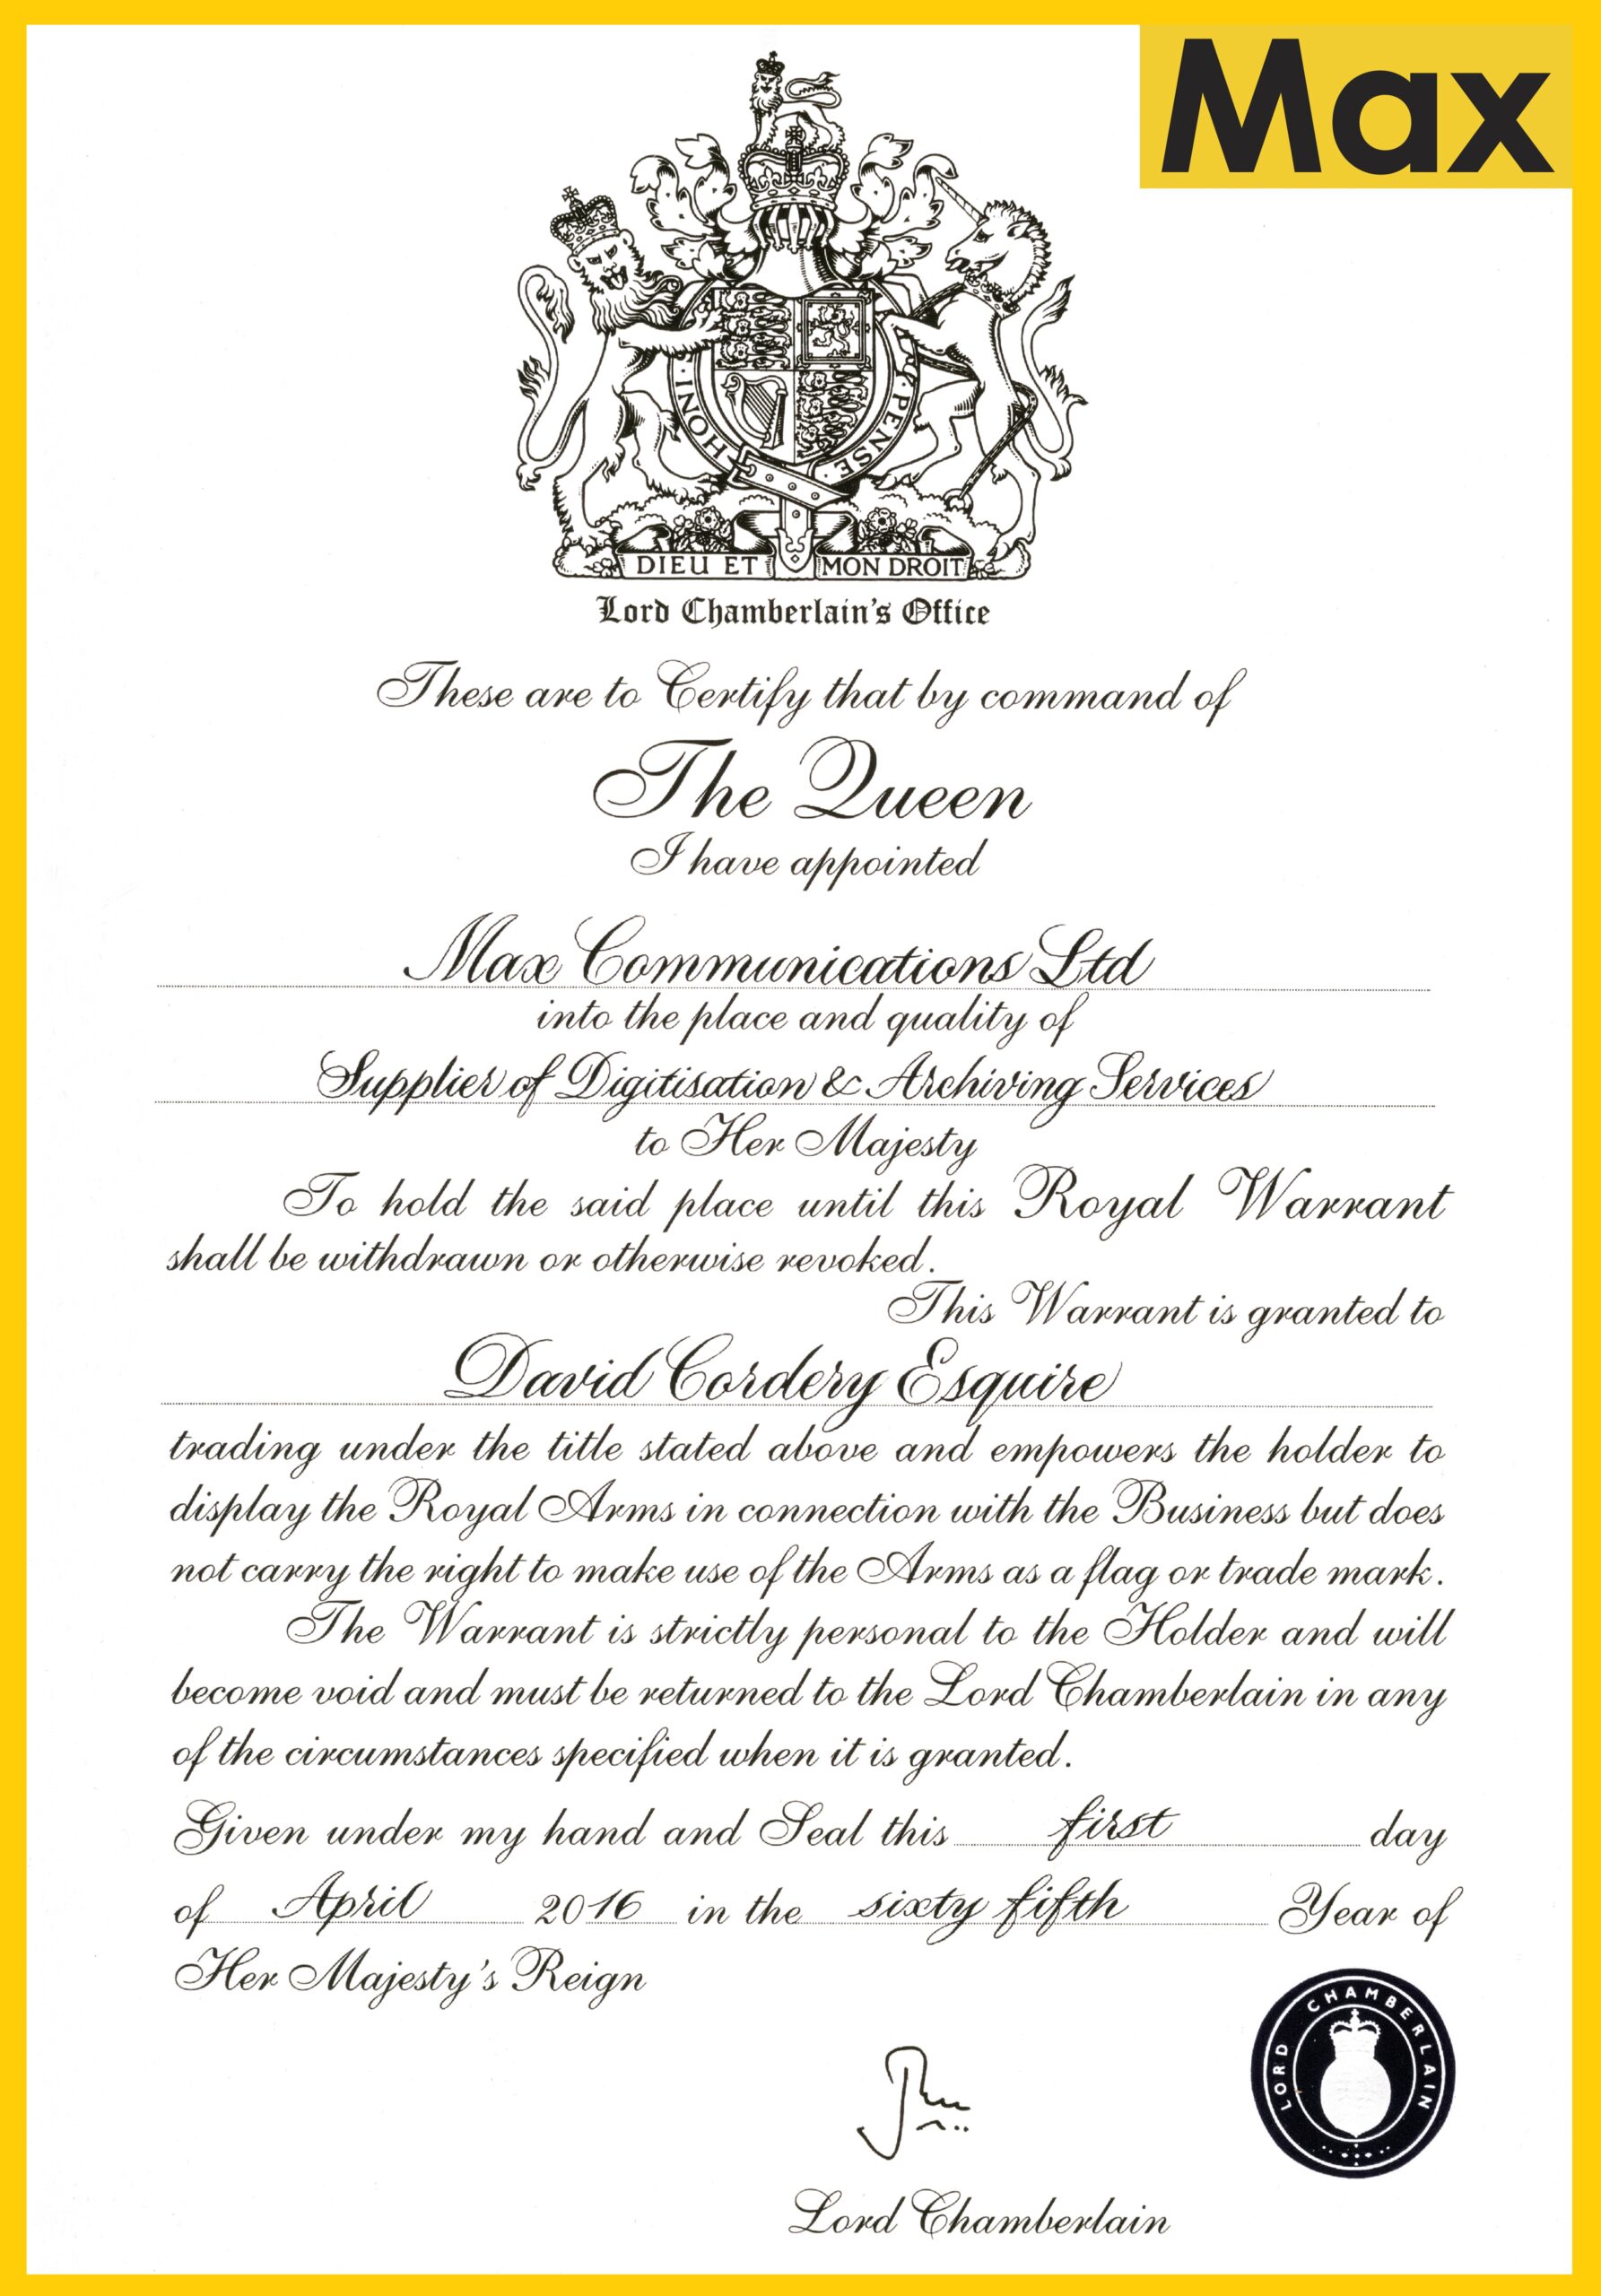 Max
HONI · PENSE ·
DIEU ET MON DROIT
Lord Chamberlain's Office
These are to Certify that by command of
The Queen
I have appointed
Max Communications Ltd
into the place and quality of
Supplier of Digitisation & Archiving Services
to Her Majesty
To hold the said place until this Royal Warrant
shall be withdrawn or otherwise revoked.
This Warrant is granted to
David Cordery Esquire
trading under the title stated above and empowers the holder to
display the Royal Arms in connection with the Business but does
not carry the right to make use of the Arms as a flag or trade mark.
The Warrant is strictly personal to the Holder and will
become void and must be returned to the Lord Chamberlain in any
of the circumstances specified when it is granted.
Given under my hand and Seal this first day
of April 2016 in the sixty fifth Year of
Her Majesty's Reign
LORD CHAMBERLAIN
Lord Chamberlain